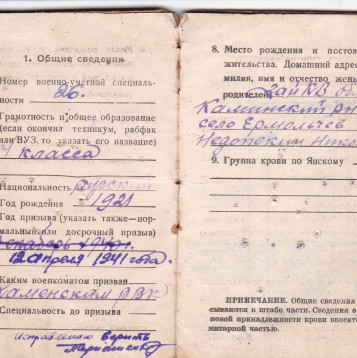 1. Общие сведения
Номер военно-учетной специаль-
ности 26.
Грамотность и общее образование
(если окончил техникум, рабфак
или ВУЗ, то указать его название)
4 класса
Национальность русский
Год рождения 1921
Год призыва (указать также—нор-
мальный или досрочный призыв)
декабрь 1940г.
12 апреля 1941 года.
Каким военкоматом призван
Каменским РВК
Специальность до призыва
Исправленному верить
8. Место рождения и постоя
жительства. Домашний адрес
милия, имя и отчество жены
родителей
Каминский
село Ермольчев
9. Группа крови по Янскому
ПРИМЕЧАНИЕ. Общие сведения
сываются в штабе части. Сведения о
новой принадлежности крови вносятс
нитарной частью.